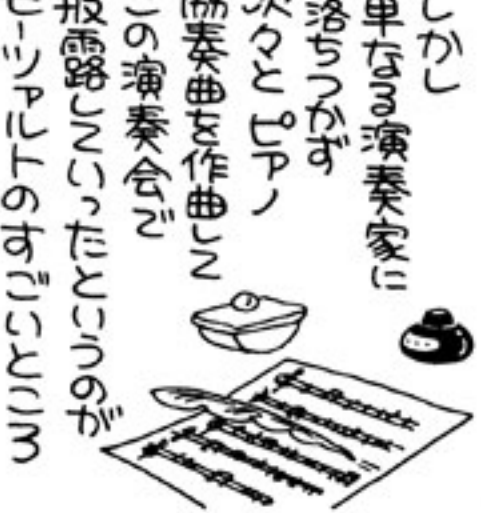 しかし
単なる演奏家に
落ちつかず
次々とピアノ
協奏曲を作曲して
この演奏会で
披露していったというのが
モーツァルトのすごいところ